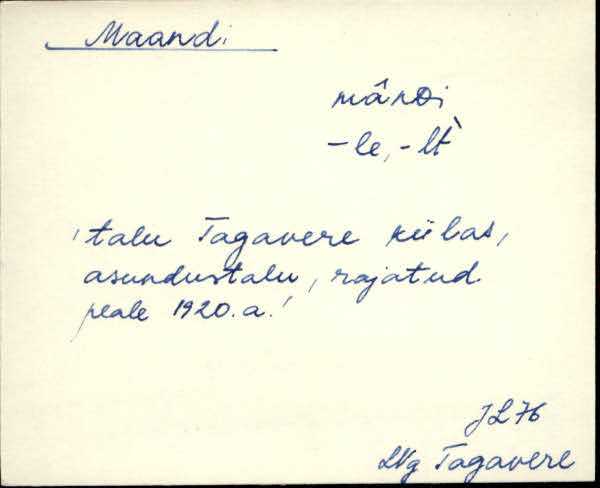 Maandi
mânDi
-le, -lt̀
'talu Tagavere külas,
asundustalu, rajatud
peale 1920.a.'
JL76
LNg Tagavere